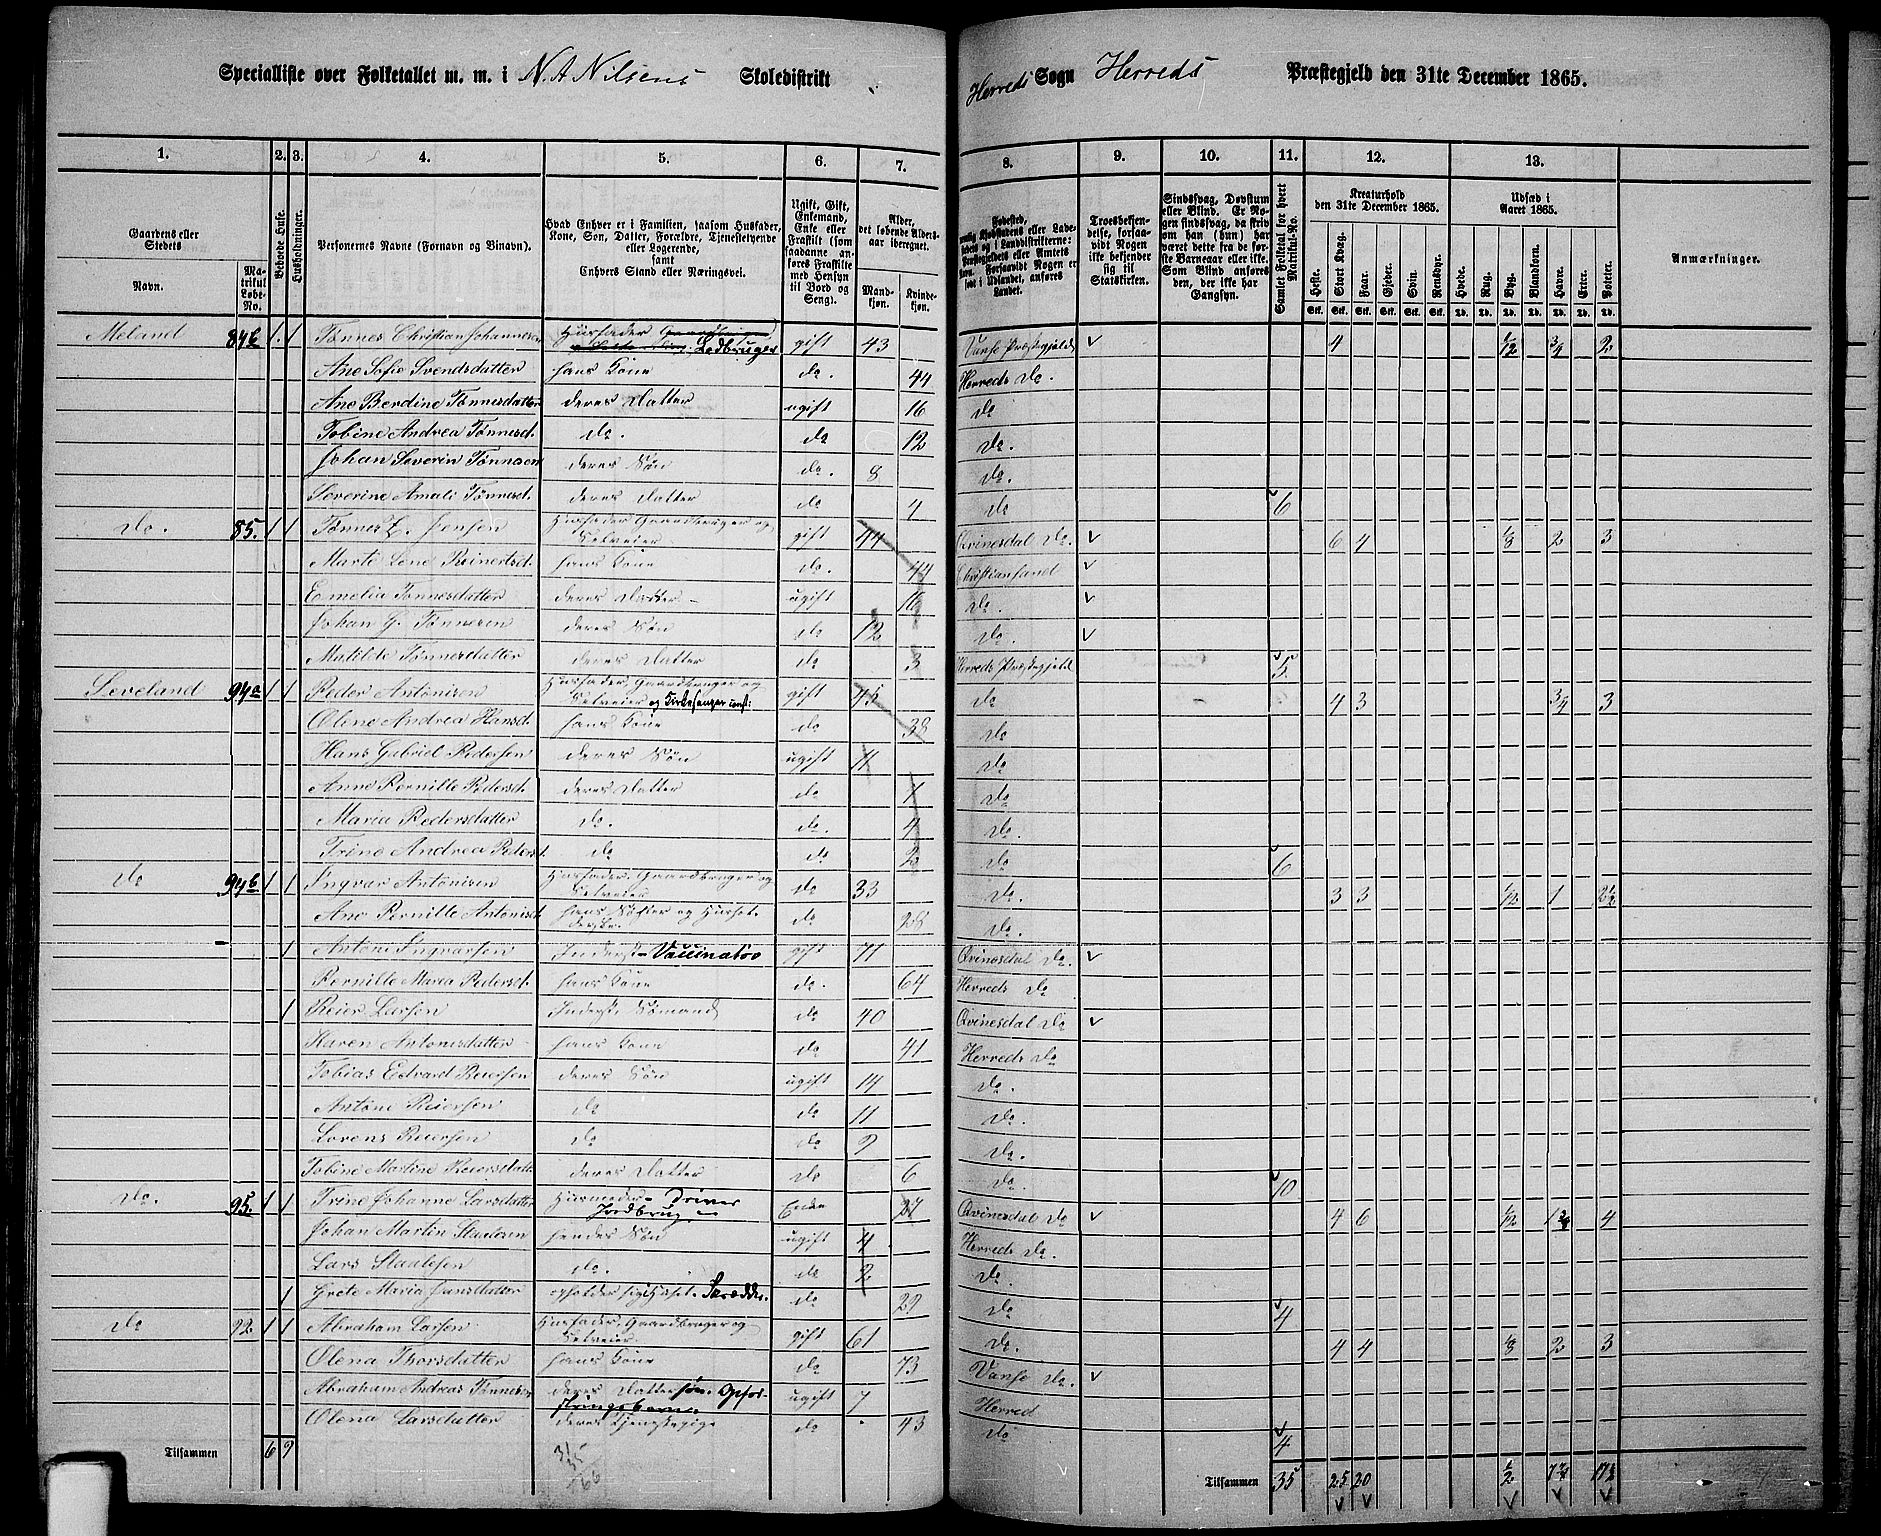 Specialliste over Folketallet m. m. i N. A Nilsens Skoledistrikt Herreds Sogn Herreds Præstegjeld den 31te December 1865.
1. 2. 3. 4. 5. 6. 7. 8. 9. 10. 11. 12. 13.
Gaardens eller Stedets
Navn.
Matrikul Løbe-No.
Beboede Huse.
Husholdninger.
Personernes Navne (Fornavn og Binavn).
Hvad Enhver er i Familien, saasom Husfader, Kone, Søn, Datter, Forældre, Tjenestetyende eller Logerende, samt Enhvers Stand eller Næringsvei.
Ugift, Gift, Enkemand, Enke eller Fraskilt (som saadanne anføres Fraskilte med Hensyn til Bord og Seng).
Alder, det løbende Aldersaar iberegnet.
Mandkjøn. Kvindekjøn.
Troesbekjendelse, forsaavidt Nogen ikke bekjender sig til Statskirken.
Sindssvag, Døvstum eller Blind. Er Nogen sindssvag, da skriv om han (hun) har været dette fra de første Barneaar eller ikke. Som Blind anføres den, der ikke har Gangsyn.
Samlet Folketal for hvert Matrikul-No.
Kreaturhold den 31te December 1865.
Heste. Stort Kvæg. Faar. Gjeder. Svin. Rensdyr.
Udsæd i Aaret 1865.
Hvede. Rug. Byg. Blandkorn. Havre. Erter. Poteter.
Anmærkninger.
Meland 84b 1 1 Tønnes Christian Johannesen Husfader Lodbruger gift 43 Vanse Præstegjeld v 4 1/12 3/4 2
Ane Sofie Svendsdatter hans Kone do. 44 Herreds do.
Ane Berdine Tønnesdatter deres Datter ugift 16 do
Tobine Andrea Tønnesd. do. do 12 do.
Johan Severin Tønnesen deres Søn do. 8 do.
Severine Amali Tønnesd. deres Datter do 4 do 6
do. 85. 1 1 Tønnes L. Jensen Husfader, Gaardbruger og Selveier gift 44 Qvinesdal do. v 6 4 1/8 2 3
Marte Lene Reinertsd. hans Kone do. 44 Christiansand v
Emelia Tønnesdatter deres Datter ugift 16 do. v
Johan G. Tønnesen deres Søn do 12 do. v
Matilde Tønnesdatter deres Datter do 3 Herreds Præstegjeld 5.
Leveland 94a 1 1 Peder Antonisen Husfader, Gaardbruger og Selveier og Kirkesanger gift 45 do 4 3 3/4 3
Oline Andrea Hansd. hans Kone do 38 do
Hans Gabriel Pedersen deres Søn ugift 11 do
Anne Pernille Pedersd. deres Datter do 7 do
Maria Pedersdatter do. do. 4 do.
Trine Andrea Pedersd. do do 2 do 6
do 94b 1 1 Ingvar Antonisen Husfader, Gaardbruger og Selveier do 33 do. 3 3 1/12 1 2 1/2
Ane Pernille Antonisd. hans Søster og Husbestyrerinde do 28 do.
1 Antoni Ingvarsen Inderst Vaccinatør gift 71 Qvinesdal do. v
Pernille Maria Pedersd. hans Kone do. 64 Herreds do
1 Reier Larsen Inderst, Sømand do 40 Qvinesdal do v
Karen Antonisdatter hans Kone do 41 Herreds do
Tobias Edvard Reiersen deres Søn ugift 14 do.
Antone Reiersen do do 11 do.
Lorens Reiersen do do 9 do.
Tobine Martine Reiersdatter deres Datter do 6 do. 10
do. 95. 1 1 Trine Johanne Larsdatter Husmoder Driver Jordbrug Enke 27 Qvinesdal do v 4 6 1/12 1 3/4 4
Johan Martin Staalesen hendes Søn ugift 4 Herreds do.
Lars Staalesen do. do 2 do.
1 Grete Maria Jansdatter opholder sig i Huset. Skrædder. do 29 do 4
do 92 1 1 Abraham Larsen Husfader, Gaardbruger og Selveier gift 61 do. 4 4 1/8 2 3
Olena Thorsdatter hans Kone do 73 Vanse do. v
Abraham Andreas Tønnesen deres Dattersøn. Opfostringsbarn ugift 7 Herred
Olena Larsdatter deres Tjenestepige do 43 do 4
Tilsammen 6 9 Tilsammen 35 25 20 1/2 7 3/4 17 1/2